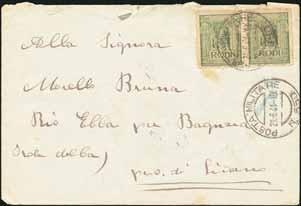 RODI RODI
Alla Signora
Morello Bruna
POSTA MILITARE
Rio Elba per Bagnaia
(Isola d'elba)
prov. di Livorno